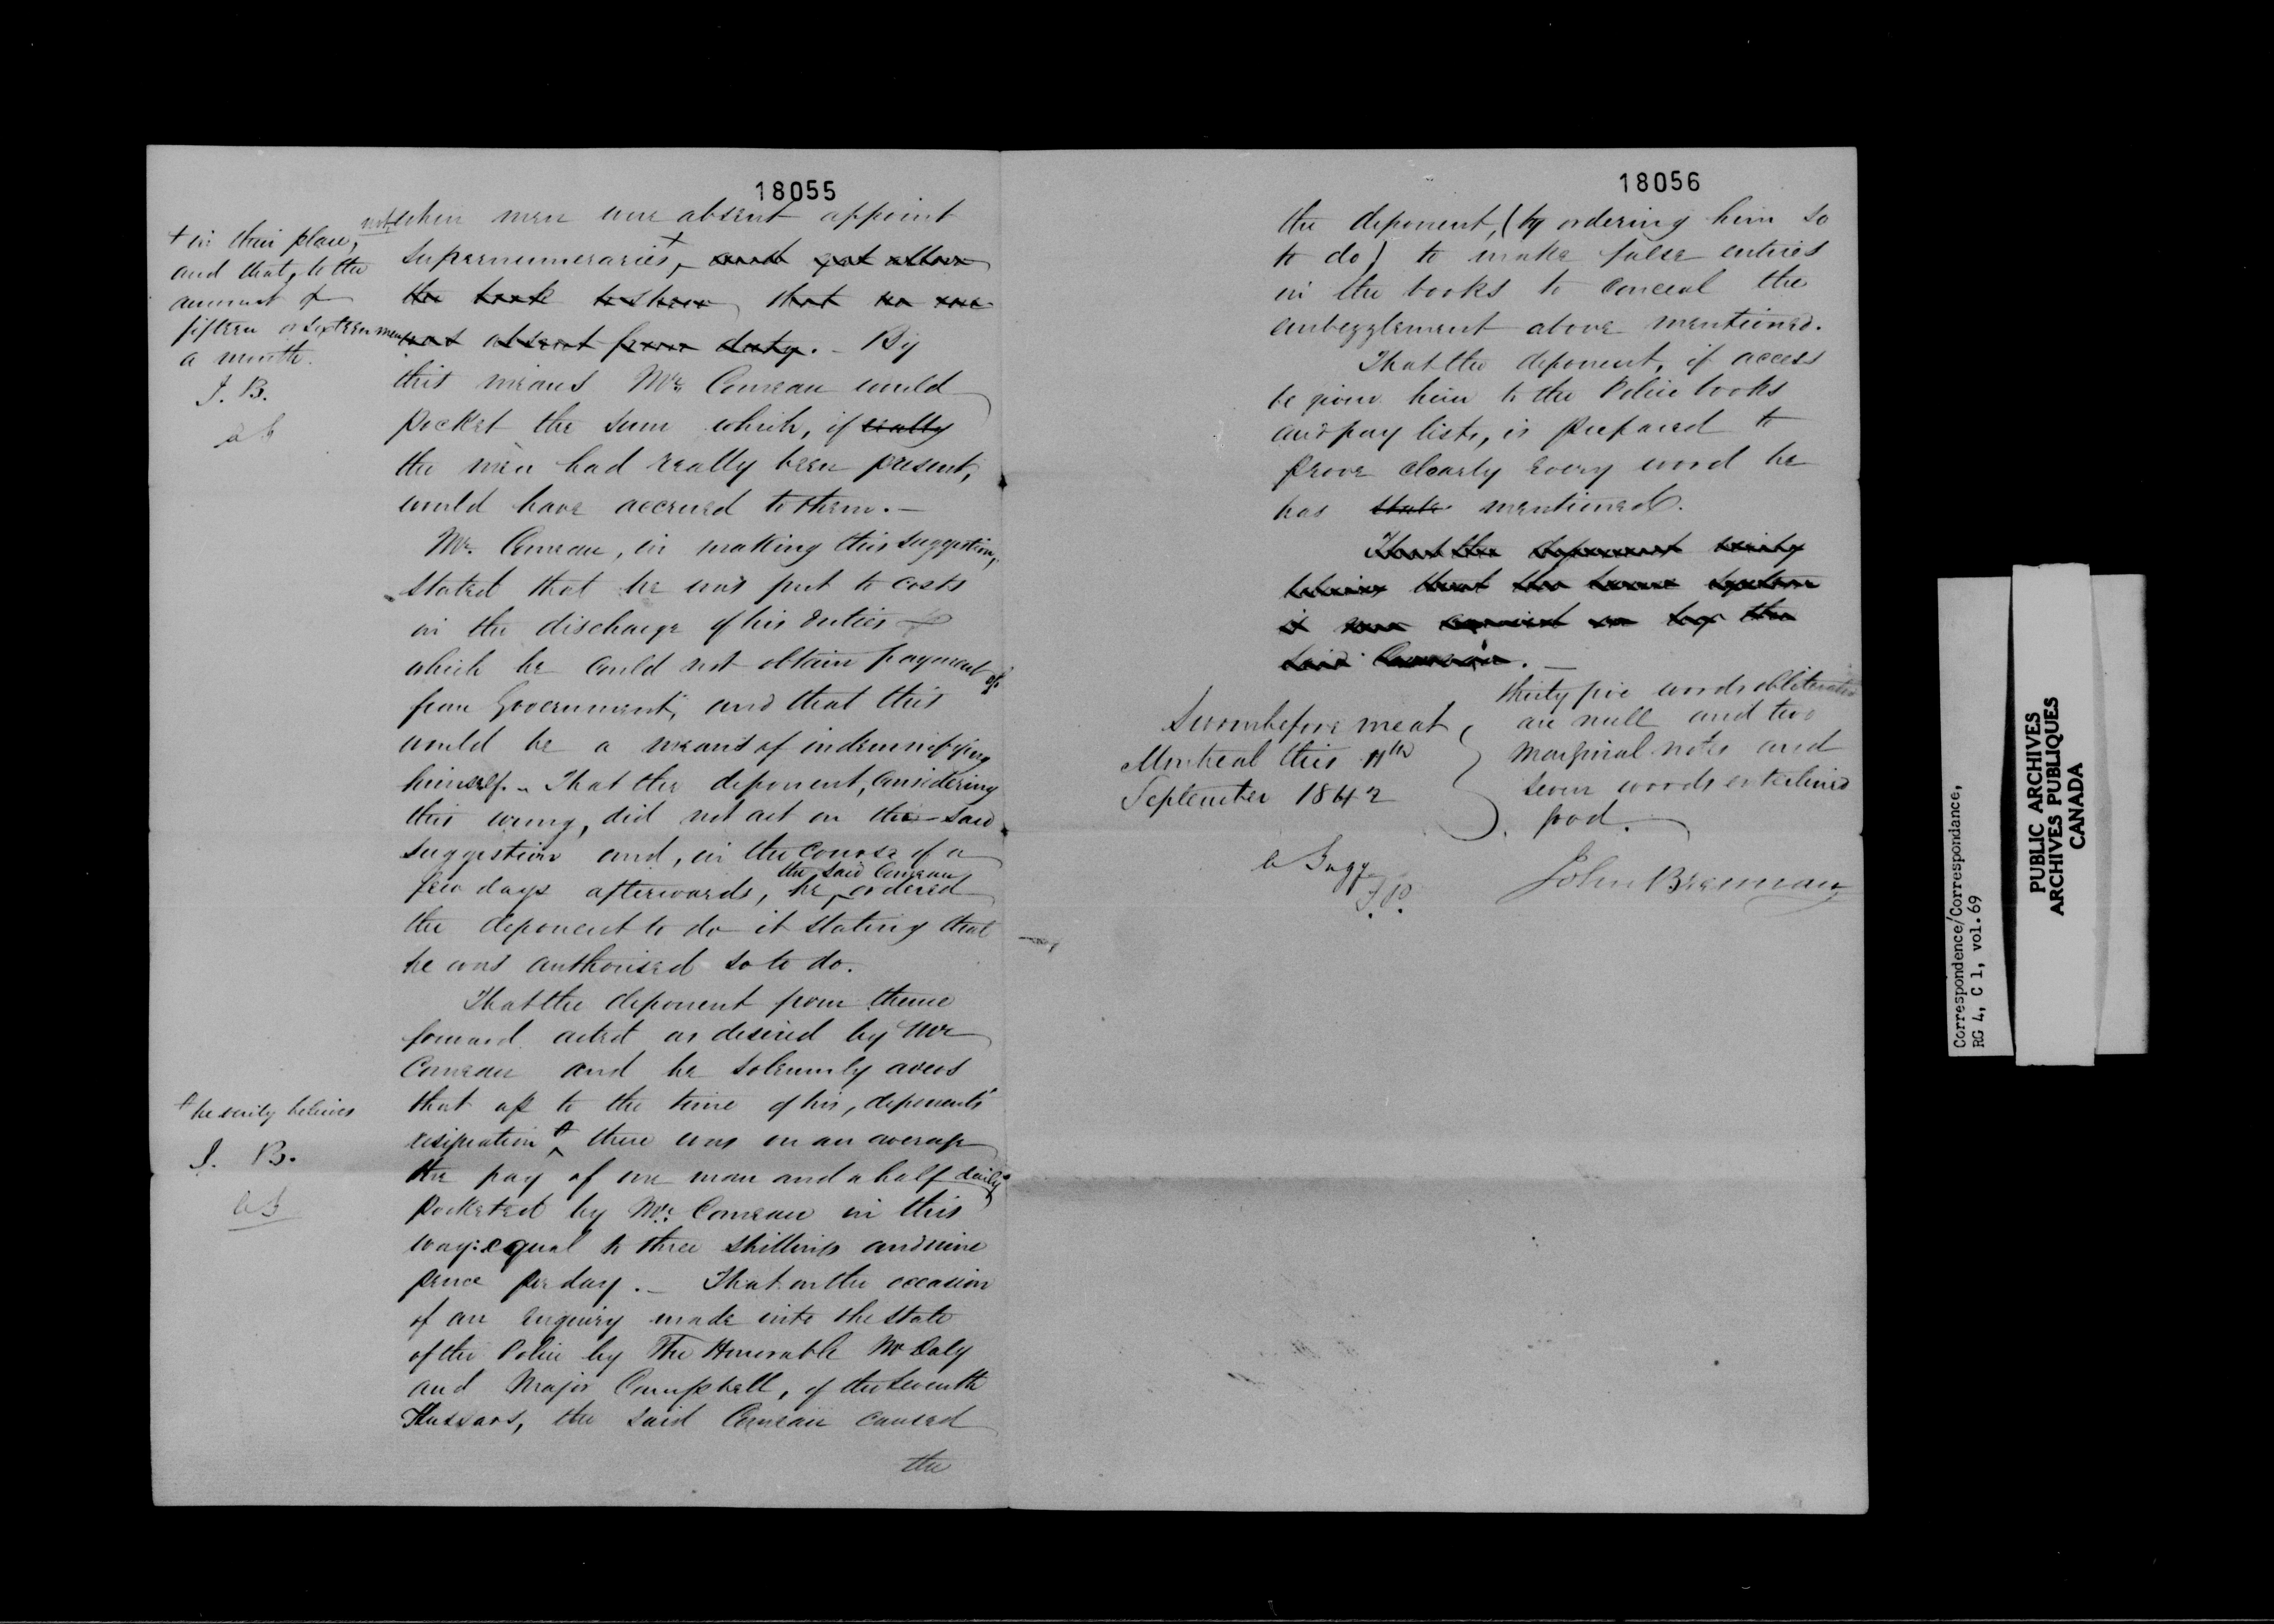 18055
+ in their place,
and that, to the
amount of
fifteen or sixteen men
a month.
J. B.
not when men were absent appoint
Supernumeraries,+ and yet allow
the book to show that no one
was absent from duty. - By
this means Mr. Comeau would
pocket the sum which, if really
the men had really been present,
would have accrued to them. -
Mr. Comeau, in making this suggestion,
stated that he was put to costs
in the discharge of his duties
which he could not obtain payment of
from Government, and that this
would be a means of indemnifying
himself. - That the deponent, considering
this wrong, did not act on the said
suggestion and, in the course of a
few days afterwards, he the said Comeau ordered
the deponent to do it stating that
he was authorised so to do.
That the deponent from thence
forward acted as desired by Mr
Comeau and he solemnly avers
that up to the time of his, deponents'
resignation + there was on an average
+ he verily believes
J. B.
the pay of one man and a half daily
pocketed by Mr. Comeau in this
way: equal to three shillings and nine
pence per day. - That on the occasion
of an enquiry made into the state
of the Police by The Honorable Mr Daly
and Major Campbell, of the Seventh
Hussars, the said Comeau caused
the
18056
the deponent, (by ordering him so
to do) to make false entries
in the books to conceal the
embezzlement above mentioned.
That the deponent, if access
be given him to the Police books
and pay lists, is prepared to
prove clearly every word he
has state mentioned.
That the deponent verily
believes that the same system
is now carried on by the
said Comeau. -
Sworn before me at
Montreal this 11th
September 1842
thirty five words obliterated
are null and two
marginal notes and
seven words interlined
good.
J.P.
John Brennan
Correspondence/Correspondance,
RG 4, C 1, vol.69
PUBLIC ARCHIVES
ARCHIVES PUBLIQUES
CANADA